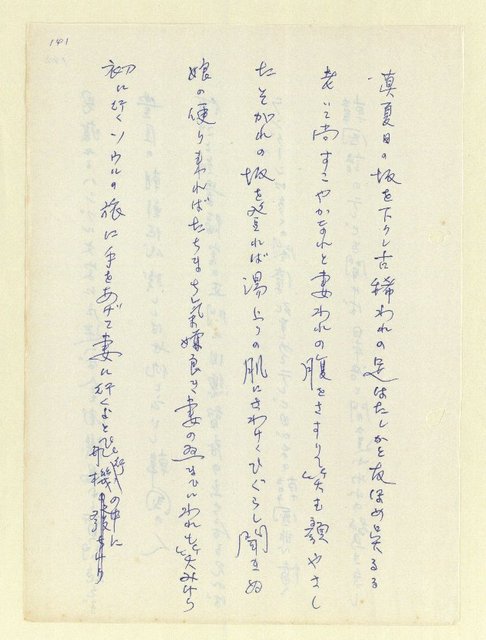 141
真夏日の坂を下りし古稀われの足はたしかと友ほめ呉るる
老いて尚すこやかなれと妻われの腹をさすりて笑む顔やさし
たそがれの坂を登れば湯上りの肌にさわりくひぐらし聞きぬ
娘の便り来ればたちまち気嫌良き妻の
われも笑み
初に行くソウルの旅に手をあげて妻に行くよと飛機の中に